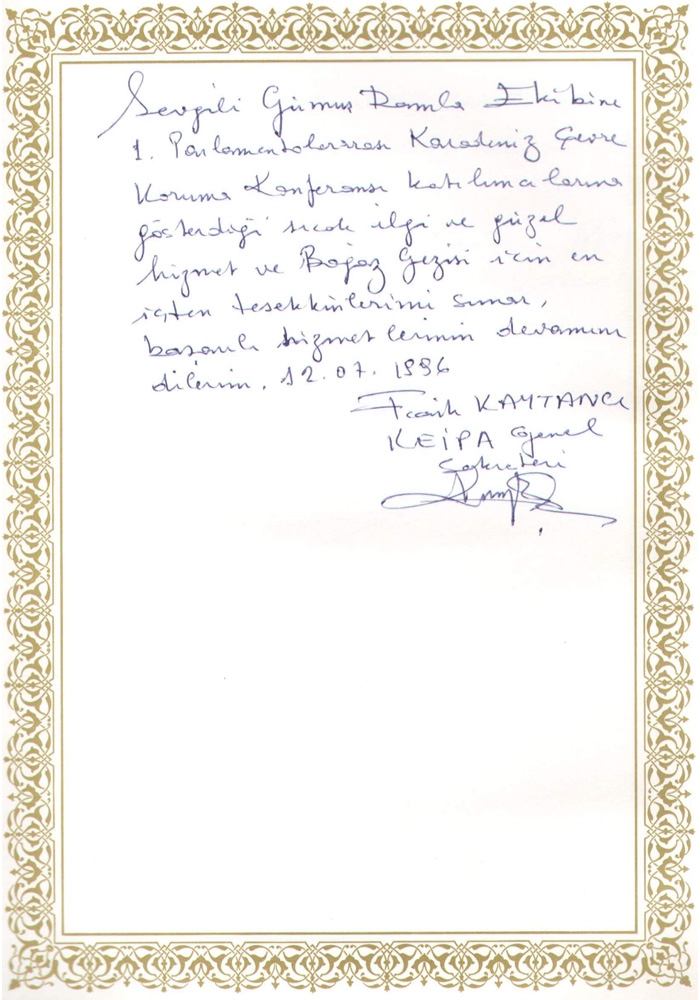 Sevgili Gümüş Damla Ekibine
1. Parlamentolararası Karadeniz Çevre
Koruma Konferansı katılımcılarına
gösterdiği sıcak ilgi ve güzel
hizmet ve Boğaz Gezisi için en
içten teşekkürlerimi sunar,
başarılı hizmetlerinin devamını
dilerim. 12.07.1996
KAYTANCI
KEİPA Genel
Sekreteri